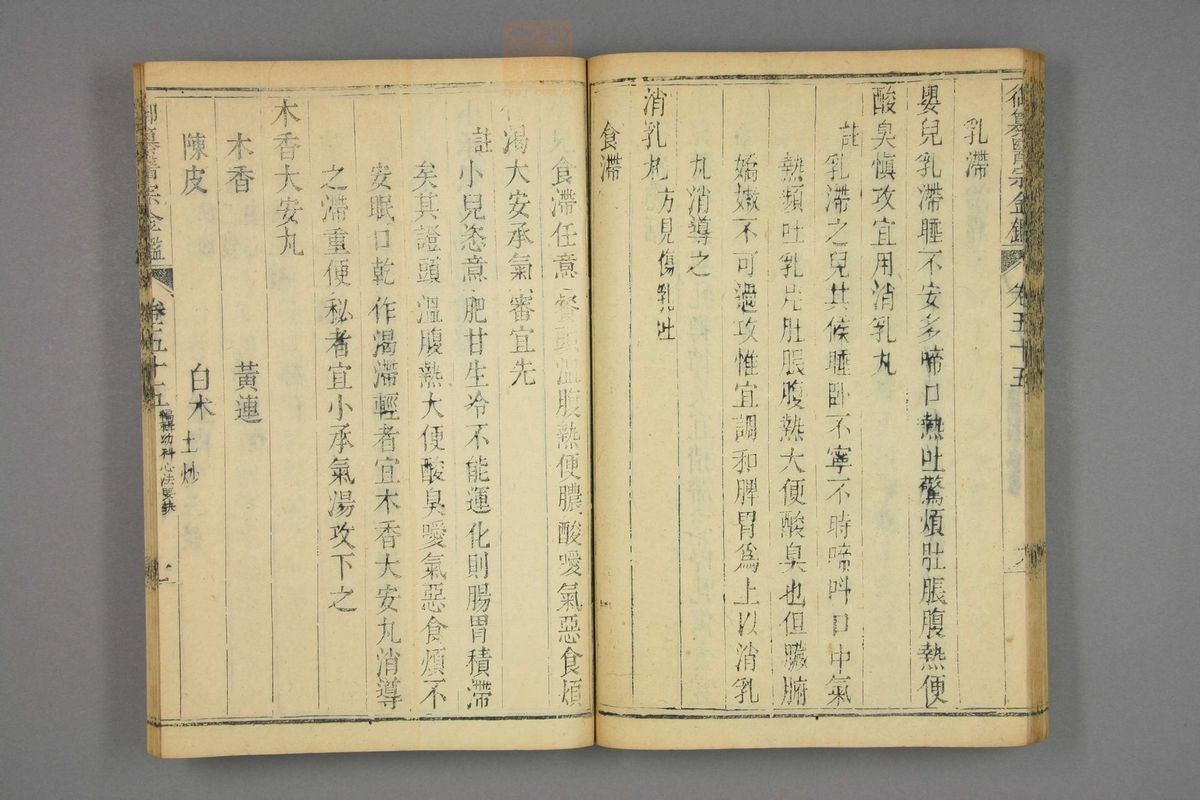 御纂醫宗金鑑 卷五十五
乳滯
嬰兒乳滯睡不安多啼口熱吐驚煩肚脹腹熱便
酸臭愼攻宜用消乳丸
註乳滯之兒其候睡卧不寧不時啼呌口中氣
熱頻吐乳片肚脹腹熱大便酸臭也但臟腑
嬌嫩不可過攻惟宜調和脾胃爲上以消乳
丸消導之
消乳丸方見傷乳吐
食滯
食滯任意餐頭溫腹熱便膿酸噯氣惡食煩
渴大安承氣審宜先
註小兒恣意肥甘生冷不能運化則腸胃積滯
矣其證頭溫腹熱大便酸臭噯氣惡食煩不
安眠口乾作渴滯輕者宜木香大安丸消導
之滯重便秘者宜小承氣湯攻下之
木香大安丸
木香 黃連
陳皮 白术土炒
御纂醫宗金鑑 卷五十五 編輯幼科心法要訣